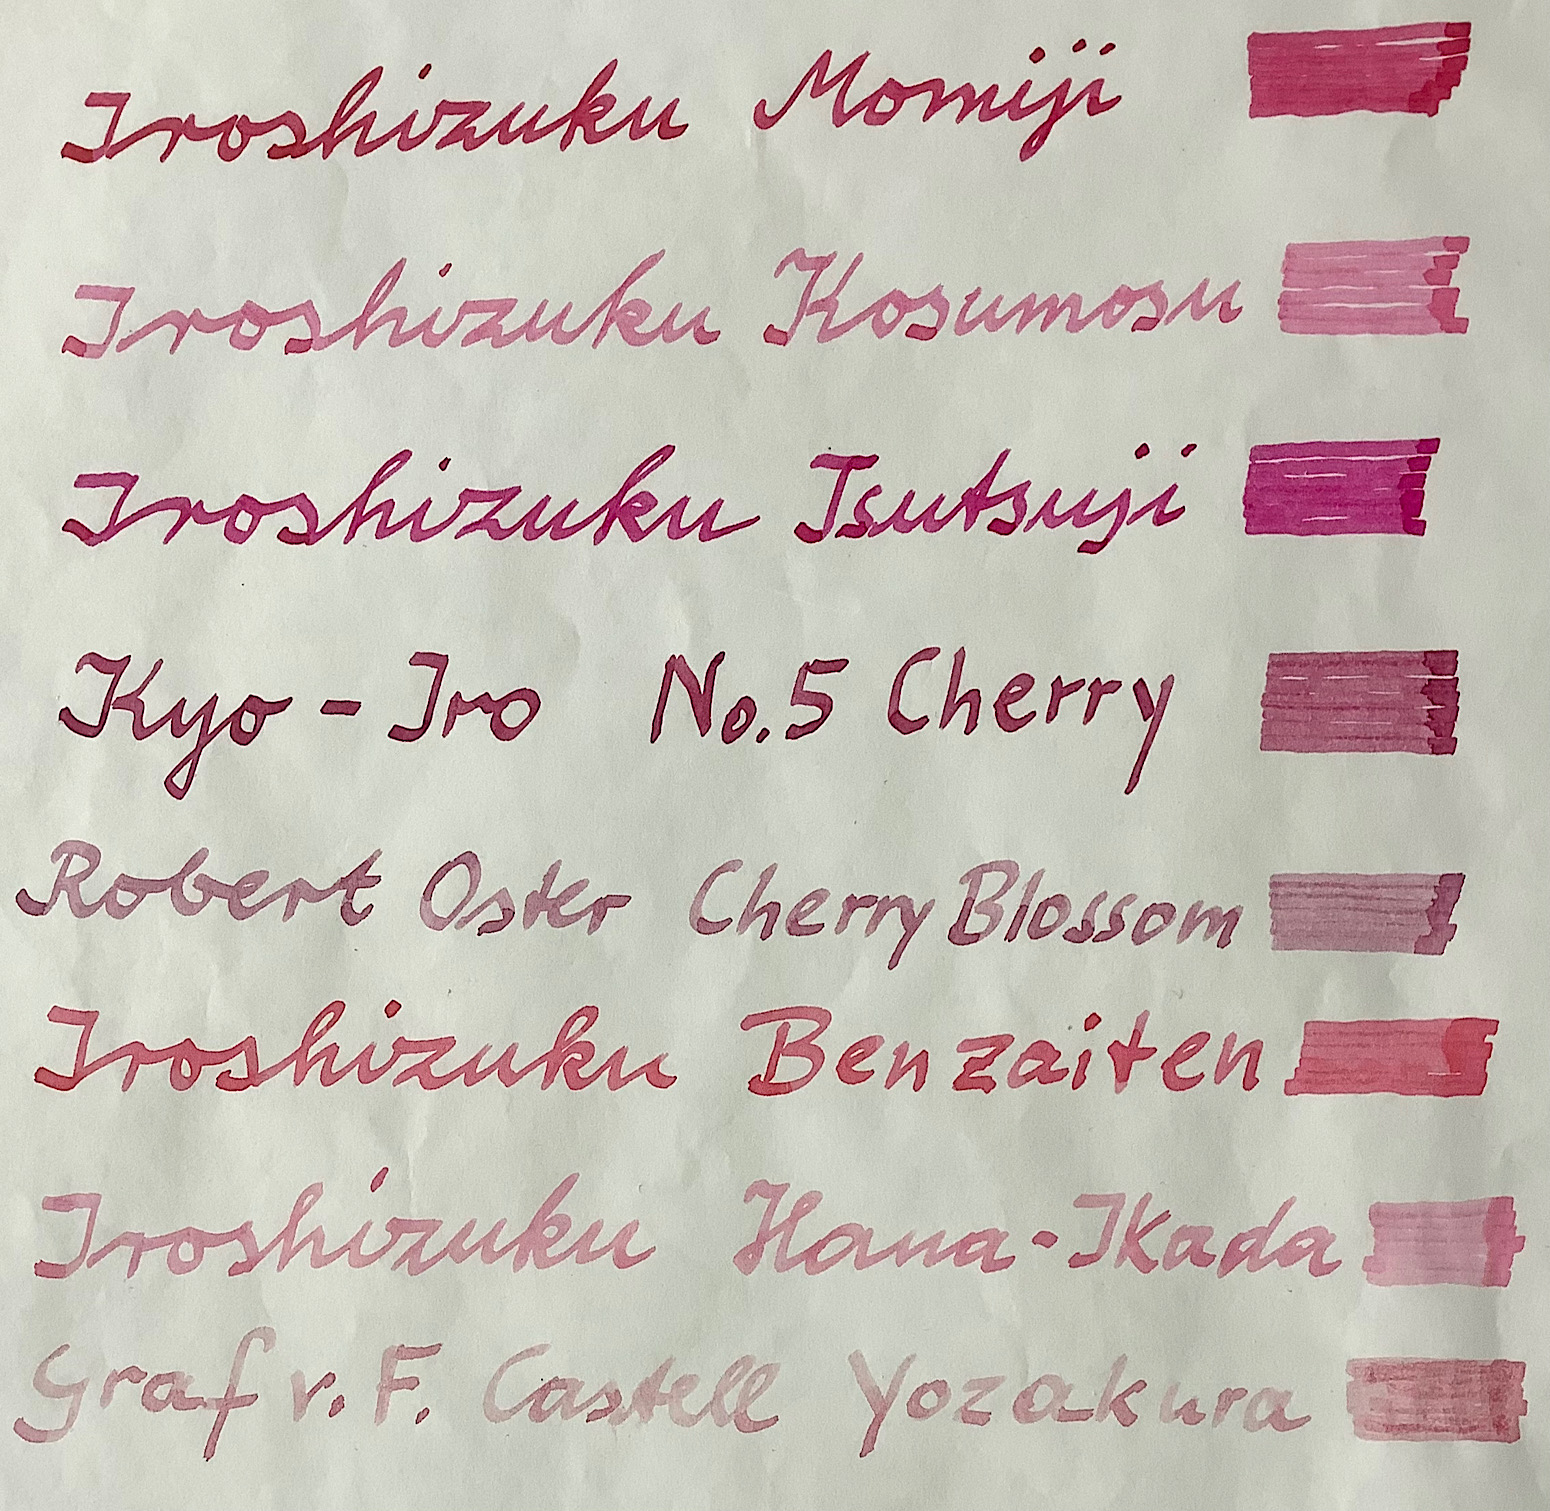 Iroshizuku Momiji
Iroshizuku Kosumosu
Iroshizuku Tsutsuji
Kyo - Iro No.5 Cherry
Robert Oster Cherry Blossom
Iroshizuku Benzaiten
Iroshizuku Hana-Ikada
Graf v. F. Castell Yozakura